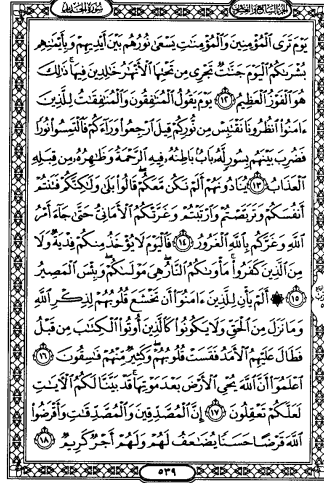 الجزء السابع والعشرون سورة الحديد
يَوْمَ تَرَى الْمُؤْمِنِينَ وَالْمُؤْمِنَاتِ يَسْعَى نُورُهُم بَيْنَ أَيْدِيهِمْ وَبِأَيْمَانِهِم
بُشْرَاكُمُ الْيَوْمَ جَنَّاتٌ تَجْرِي مِن تَحْتِهَا الْأَنْهَارُ خَالِدِينَ فِيهَا ذَلِكَ
هُوَ الْفَوْزُ الْعَظِيمُ ١٢ يَوْمَ يَقُولُ الْمُنَافِقُونَ وَالْمُنَافِقَاتُ لِلَّذِينَ
ءَامَنُوا انظُرُونَا نَقْتَبِسْ مِن نُّورِكُمْ قِيلَ ارْجِعُوا وَرَاءَكُمْ فَالْتَمِسُوا نُورًا
فَضُرِبَ بَيْنَهُم بِسُورٍ لَّهُ بَابٌ بَاطِنُهُ فِيهِ الرَّحْمَةُ وَظَاهِرُهُ مِن قِبَلِهِ
الْعَذَابُ ١٣ يُنَادُونَهُمْ أَلَمْ نَكُن مَّعَكُمْ قَالُوا بَلَى وَلَكِنَّكُمْ فَتَنتُمْ
أَنفُسَكُمْ وَتَرَبَّصْتُمْ وَارْتَبْتُمْ وَغَرَّتْكُمُ الْأَمَانِيُّ حَتَّى جَاءَ أَمْرُ
اللَّهِ وَغَرَّكُم بِاللَّهِ الْغَرُورُ ١٤ فَالْيَوْمَ لَا يُؤْخَذُ مِنكُمْ فِدْيَةٌ وَلَا
مِنَ الَّذِينَ كَفَرُوا مَأْوَاكُمُ النَّارُ هِيَ مَوْلَاكُمْ وَبِئْسَ الْمَصِيرُ
١٥ ۞ أَلَمْ يَأْنِ لِلَّذِينَ ءَامَنُوا أَن تَخْشَعَ قُلُوبُهُمْ لِذِكْرِ اللَّهِ
وَمَا نَزَلَ مِنَ الْحَقِّ وَلَا يَكُونُوا كَالَّذِينَ أُوتُوا الْكِتَابَ مِن قَبْلُ
فَطَالَ عَلَيْهِمُ الْأَمَدُ فَقَسَتْ قُلُوبُهُمْ وَكَثِيرٌ مِّنْهُمْ فَاسِقُونَ ١٦
اعْلَمُوا أَنَّ اللَّهَ يُحْيِ الْأَرْضَ بَعْدَ مَوْتِهَا قَدْ بَيَّنَّا لَكُمُ الْآيَاتِ
لَعَلَّكُمْ تَعْقِلُونَ ١٧ إِنَّ الْمُصَّدِّقِينَ وَالْمُصَّدِّقَاتِ وَأَقْرَضُوا
اللَّهَ قَرْضًا حَسَنًا يُضَاعَفُ لَهُمْ وَلَهُمْ أَجْرٌ كَرِيمٌ ١٨
٥٣٩